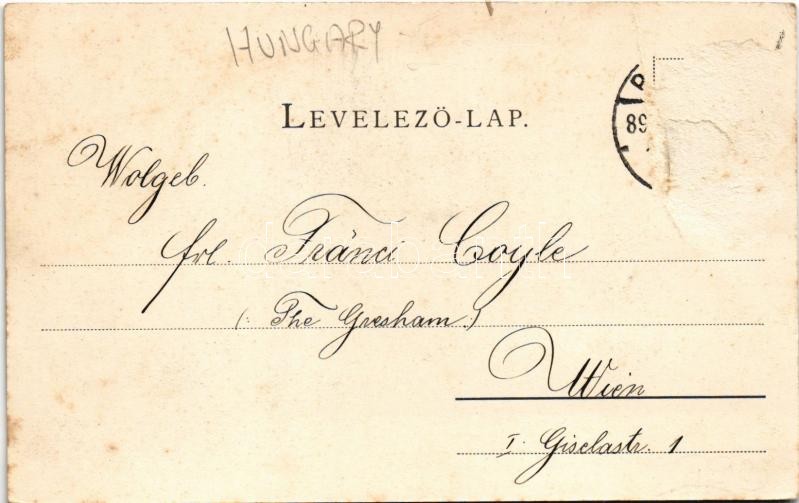 HUNGARY
LEVELEZÖ-LAP.
89
Wolgeb.
frl. Fränci Coyle
(: The Gresham:)
Wien
I. Giselastr. 1